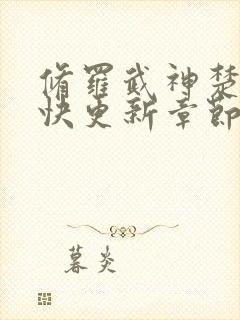 修罗武神楚
快更新章节
暮炎